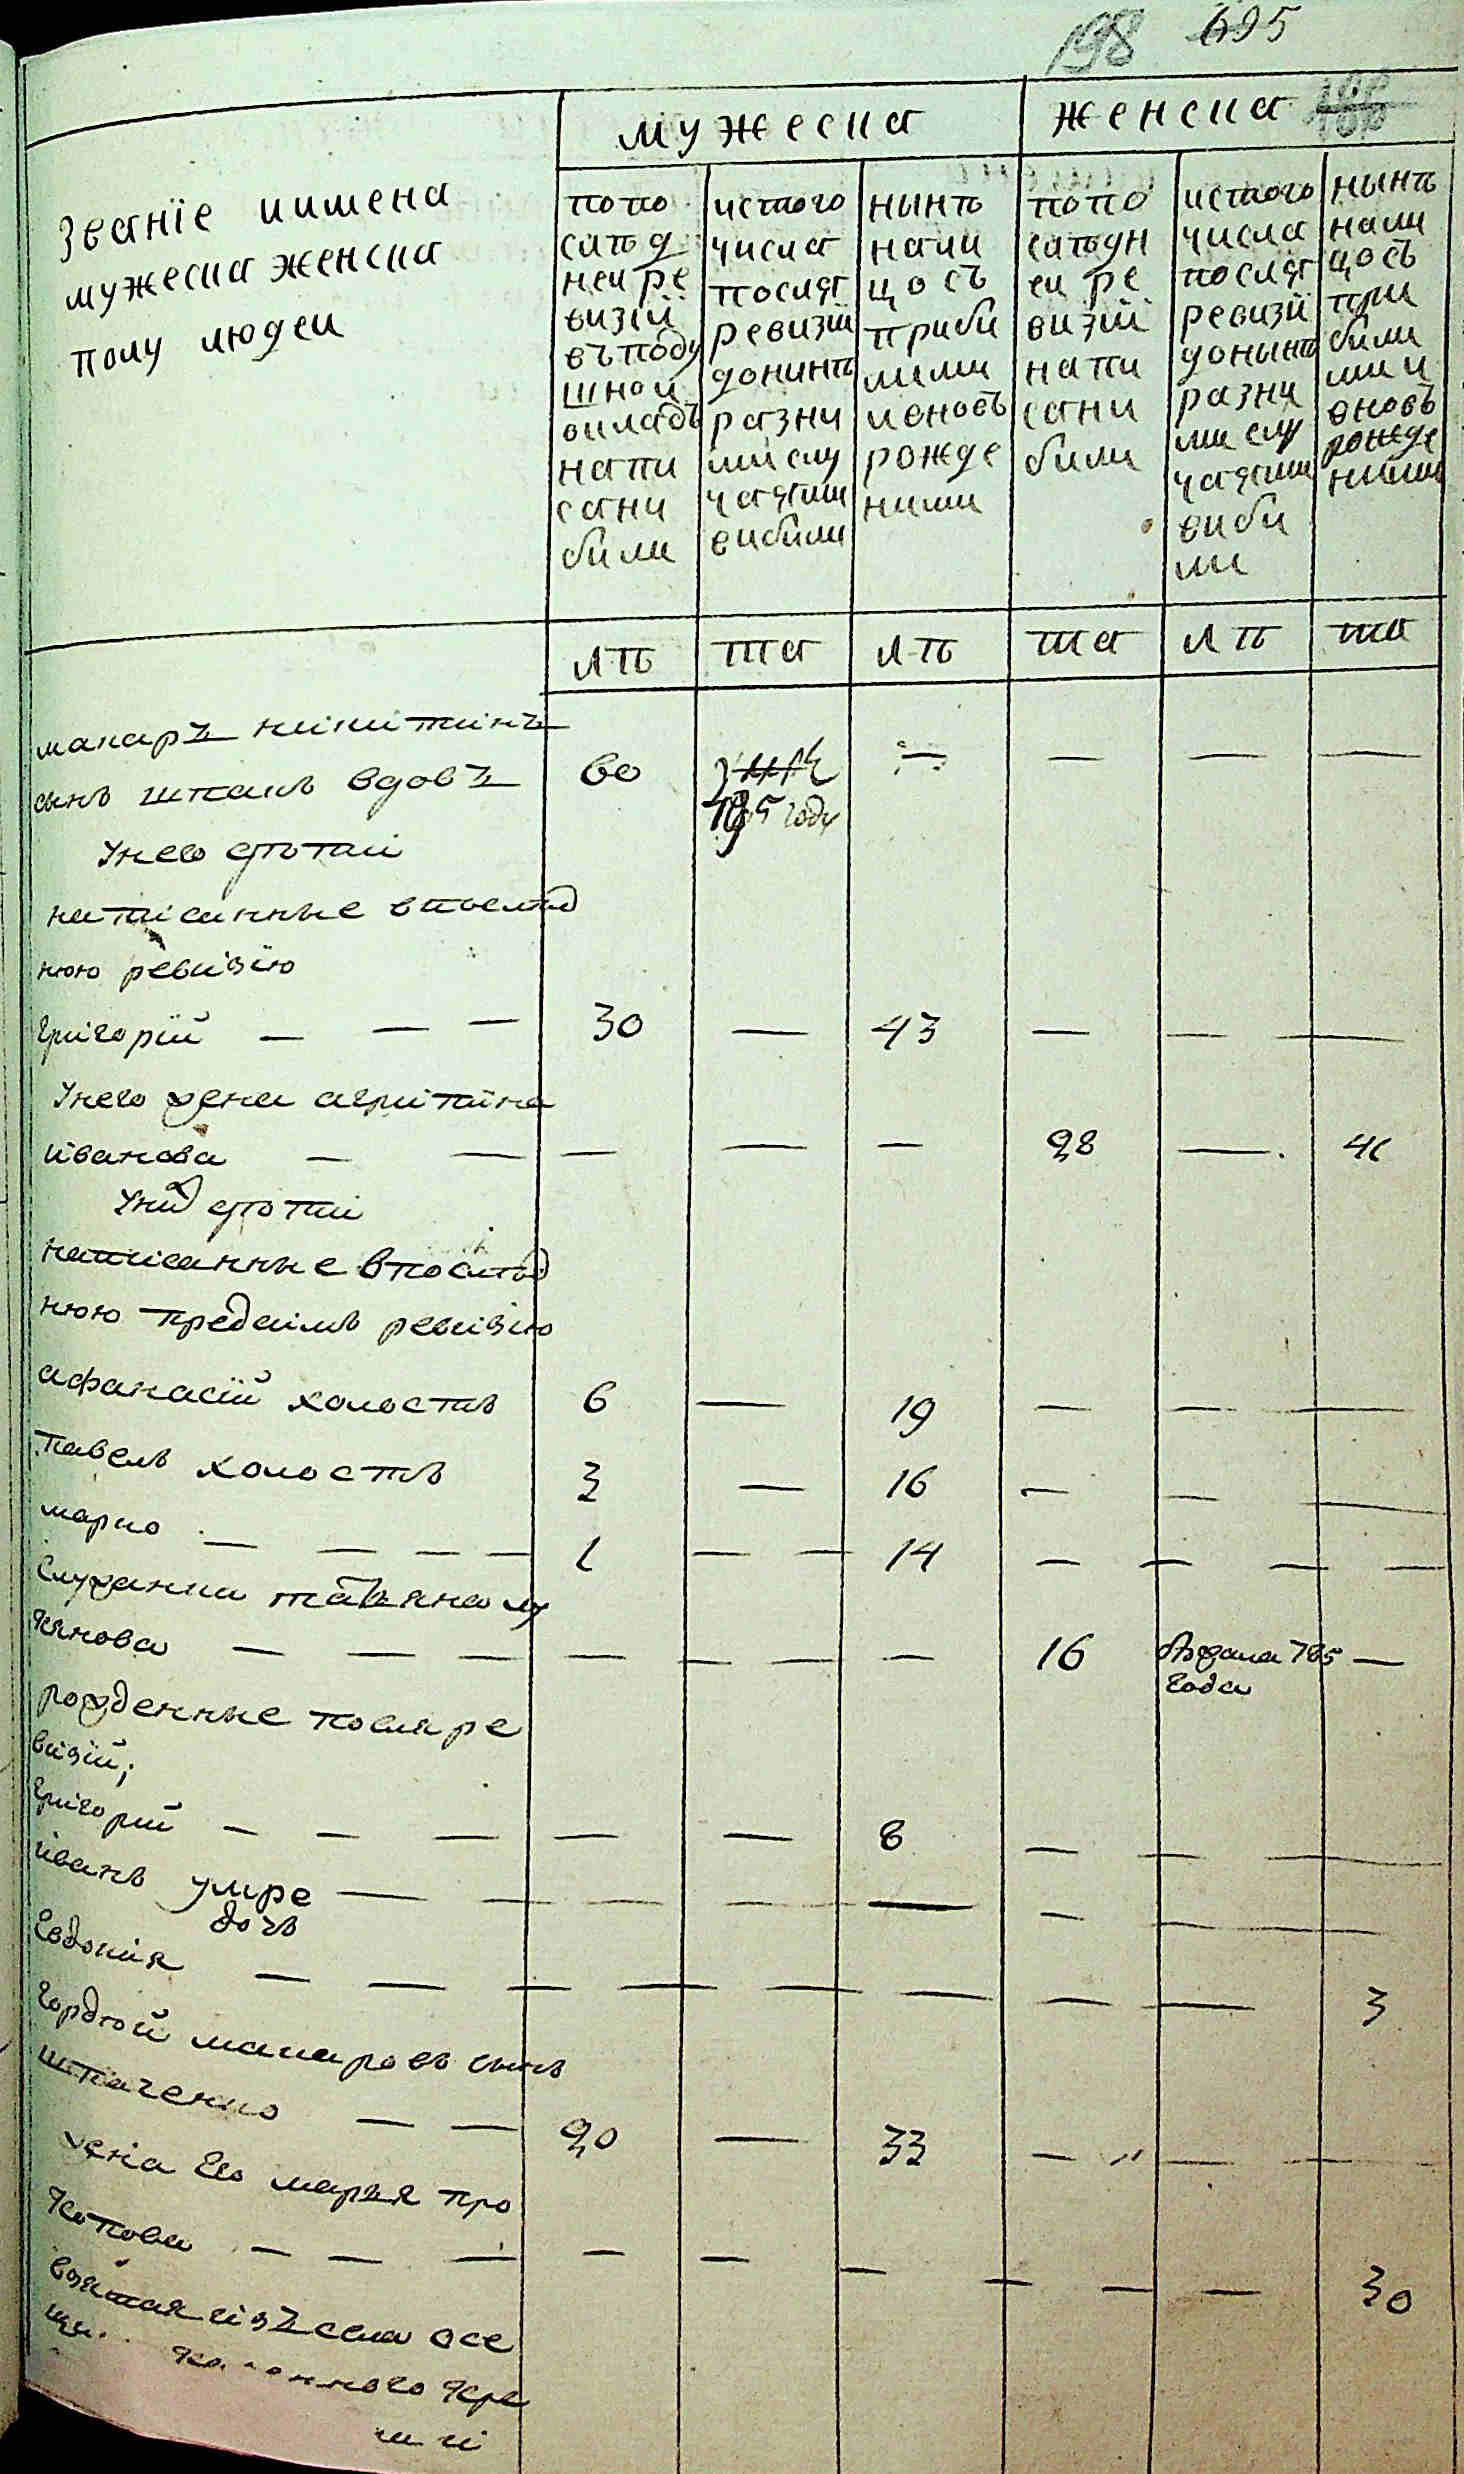 198 695
мужеска женска
Званїе иимена
мужеска женска
полу людеи
попо
слѣд
неи ре
визїи
въподу
шнои
окладъ
напи
сани
били
истого
числа
послѣ
ревизїи
донинѣ
разни
ми слу
чаями
вибили
нынѣ
нали
цосъ
приби
лими
ивновъ
рожде
ними
попо
слѣдн
еи ре
визїи
напи
сани
били
истого
числа
послѣ
ревизїи
донынѣ
разни
ми слу
чаями
виби
ли
нынѣ
нали
цосъ
при
били
ми и
вновъ
рожде
ними
лѣ та лѣ та лѣ та
макаръ никитинъ
сынъ шпакъ вдовъ 60 — — — —
785 году
Унего дѣти
написанные впослѣд
нюю ревизїю
Григорїй — — — 30 — 43 — — —
Унего жена агрипина
иванова — — — — — 28 — 41
Уних дѣти
написанные впослѣд
нюю предсимъ ревизїю
афанасїй холостъ 6 — 19 — — —
павелъ холостъ 3 — 16 — — —
марко — — — — 1 — — 14 — — — —
Служанки татьяна лу
кянова — — — — — — — 16 —
785
года
рожденные после ре
визїй;
Григорїй — — — — — 8 — — —
иванъ умре — — — — — — —
дочь
Евдокия — — — — — — — — 3
Гордѣй макаровъ сынъ
шпаченко — — 20 — 33 — — —
жена Его марья про
копова — — — — — — — — — 30
взятая изъ села осе